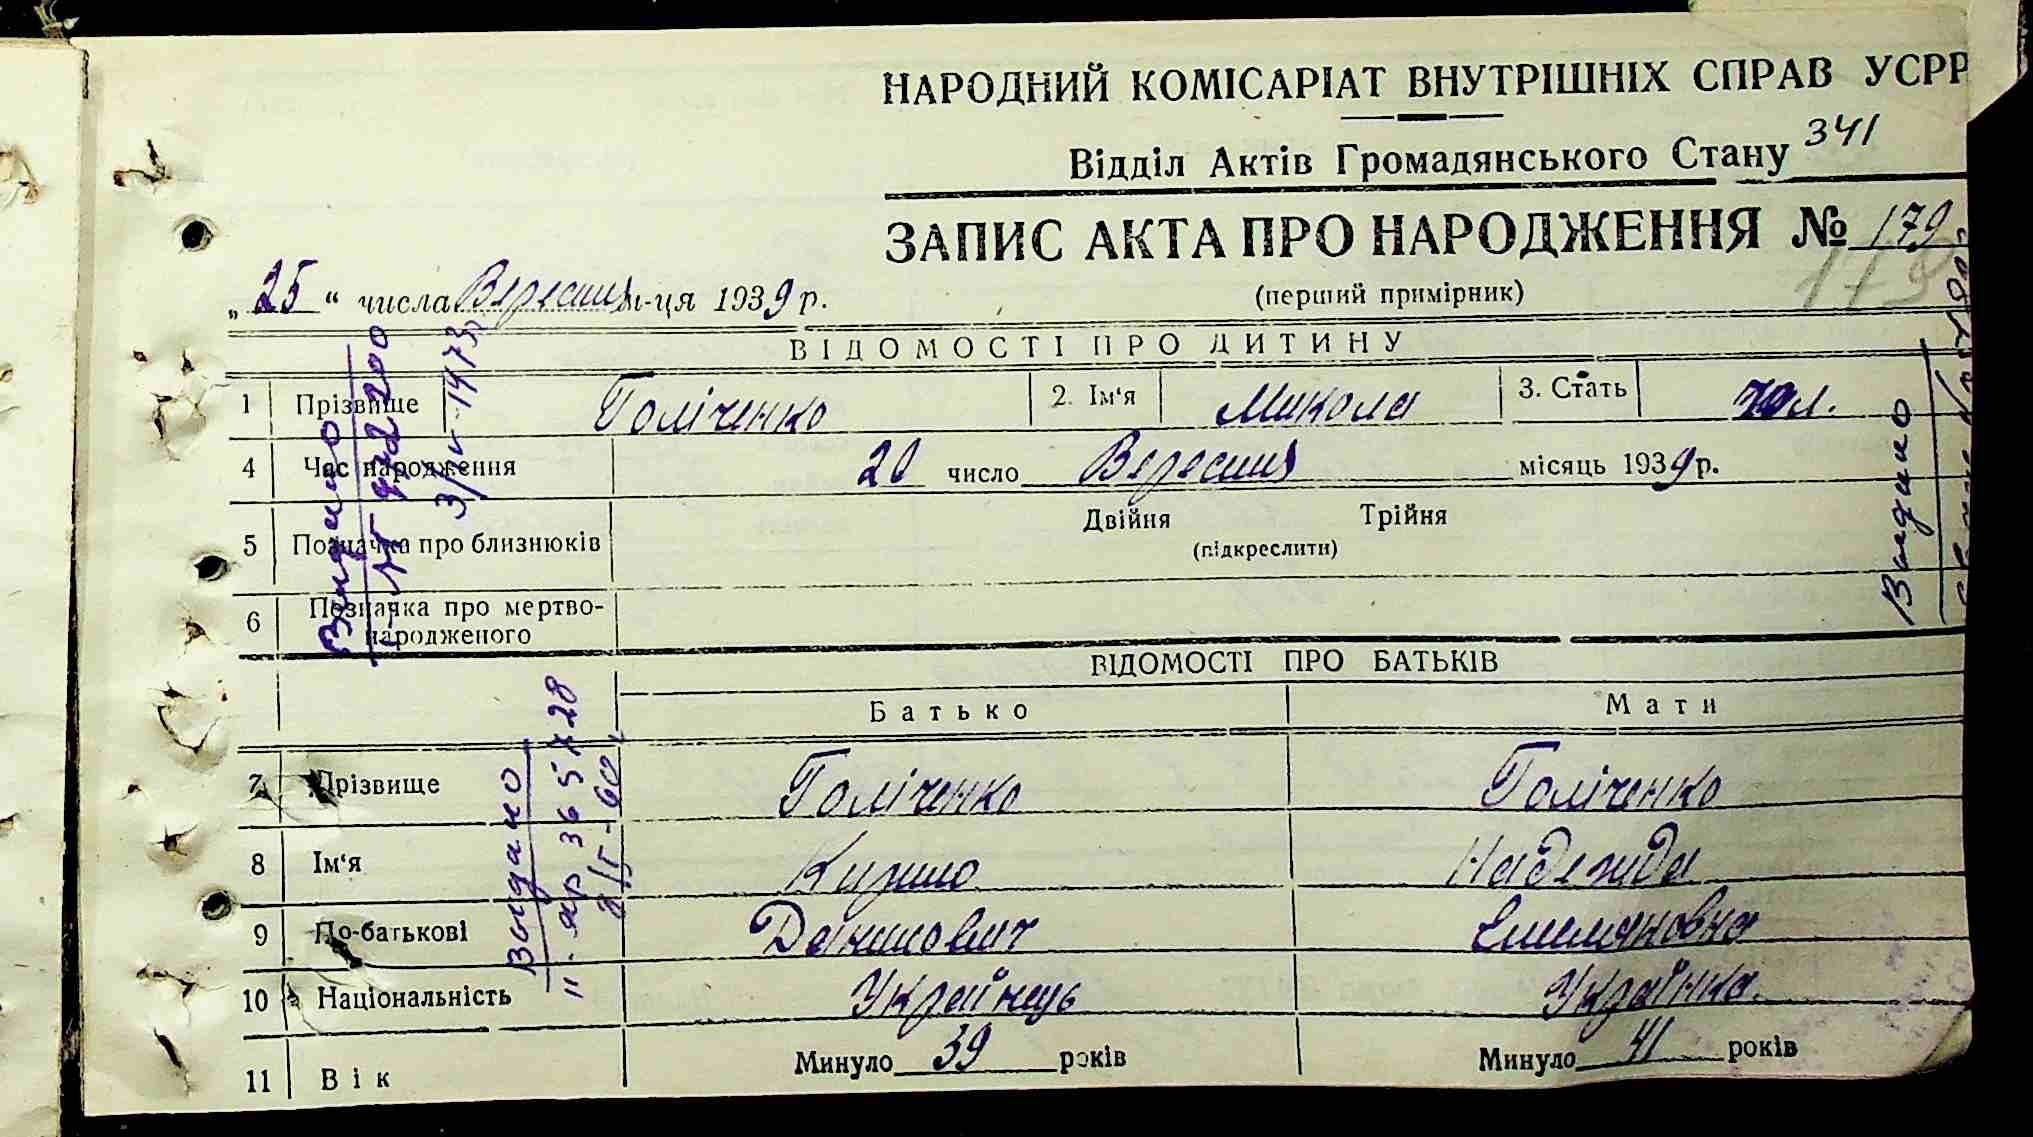 НАРОДНИЙ КОМІСАРІАТ ВНУТРІШНІХ СПРАВ УСРР
Відділ Актів Громадянського Стану 341
ЗАПИС АКТА ПРО НАРОДЖЕННЯ № 179
179
„25“ числа Вересня м-ця 1939 р.
(перший примірник)
ВІДОМОСТІ ПРО ДИТИНУ
1 Прізвище Голіченко 2. Ім‘я Микола 3. Стать чол.
4 Час народження 20 число Вересня місяць 1939 р.
5 Позначка про близнюків Двійня Трійня
(підкреслити)
6 Позначка про мертво-
народженого
ВІДОМОСТІ ПРО БАТЬКІВ
Батько Мати
7 Прізвище Голіченко Голіченко
8 Ім‘я Кирило Надежда
9 По-батькові Денисович Емельяновна
10 Національність Українець Українка
11 Вік Минуло 39 років Минуло 41 років
Выдано
1973
Выдано
II-ЯР 365728
60
Выдано